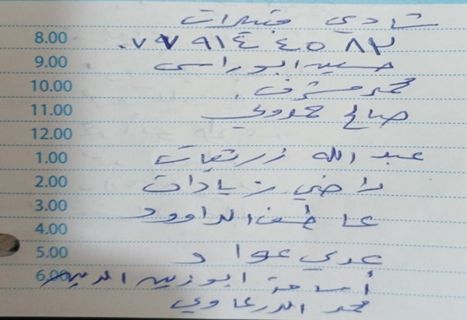 شادي
8.00 ٠٧٧٩١٤٤٥٨٣
9.00 حسين ابوراسي
10.00 محمد مشرف
11.00 صالح حمودي
12.00
1.00 عبد الله زريقات
2.00 راضي زيادات
3.00 عاطف الداوود
4.00
5.00 عدي عواد
6.00 أسامة ابوزيد الديه
محمد الدرعاوي